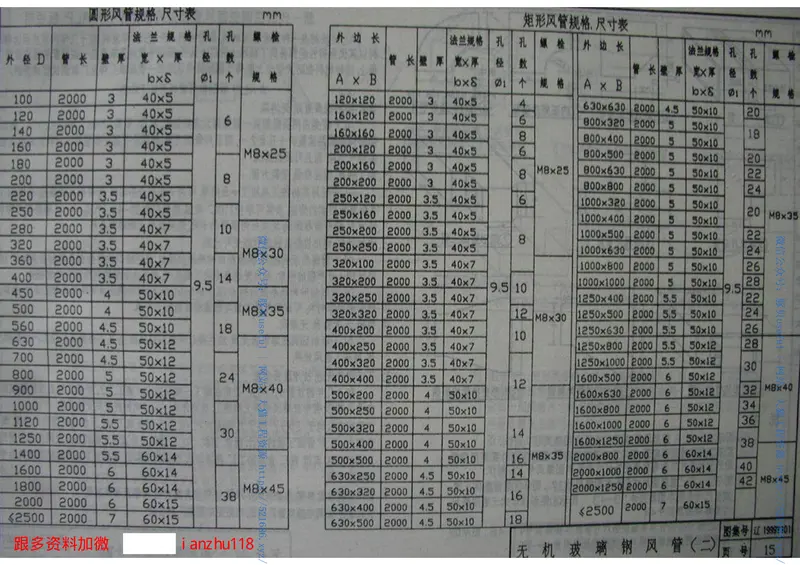 圆形风管规格,尺寸表 mm
外径D 管长 壁厚 法兰规格 宽×厚 b×δ 孔径 Ø1 孔数 个 螺检 规格
100 2000 3 40×5
120 2000 3 40×5 6
140 2000 3 40×5
160 2000 3 40×5 M8×25
180 2000 3 40×5
200 2000 3 40×5 8
220 2000 3.5 40×5
250 2000 3.5 40×5
280 2000 3.5 40×7 10
320 2000 3.5 40×7 M8×30
360 2000 3.5 40×7
400 2000 3.5 40×7 9.5 14
450 2000 4 50×10
500 2000 4 50×10 M8×35
560 2000 4.5 50×10 18
630 2000 4.5 50×12
700 2000 4.5 50×12
800 2000 5 50×12 24
900 2000 5 50×12 M8×40
1000 2000 5 50×12
1120 2000 5.5 50×12 30
1250 2000 5.5 50×12
1400 2000 5.5 60×14
1600 2000 6 60×14
1800 2000 6 60×14 38 M8×45
2000 2000 6 60×15
≤2500 2000 7 60×15
矩形风管规格,尺寸表 mm
外边长 A×B 管长 壁厚 法兰规格 宽×厚 b×δ 孔径 Ø1 孔数 个 螺检 规格
120×120 2000 3 40×5 4
160×120 2000 3 40×5 6
160×160 2000 3 40×5 8
200×120 2000 3 40×5 6
200×160 2000 3 40×5 8 M8×25
200×200 2000 3 40×5
250×120 2000 3.5 40×5 6
250×160 2000 3.5 40×5
250×200 2000 3.5 40×5 8
250×250 2000 3.5 40×5
320×100 2000 3.5 40×7
320×200 2000 3.5 40×7 9.5 10
320×250 2000 3.5 40×7
320×320 2000 3.5 40×7 12 M8×30
400×200 2000 3.5 40×7 10
400×250 2000 3.5 40×7
400×320 2000 3.5 40×7
400×400 2000 3.5 40×7 12
500×200 2000 4 50×10
500×250 2000 4 50×10
500×320 2000 4 50×10 14
500×400 2000 4 50×10 M8×35
500×500 2000 4 50×10 16
630×250 2000 4.5 50×10 14
630×320 2000 4.5 50×10 16
630×400 2000 4.5 50×10
630×500 2000 4.5 50×10 18
外边长 A×B 管长 壁厚 法兰规格 宽×厚 b×δ 孔径 Ø1 孔数 个 螺检 规格
630×630 2000 4.5 50×10 20
800×320 2000 5 50×10 18
800×400 2000 5 50×10
800×500 2000 5 50×10 20
800×630 2000 5 50×10 22
800×800 2000 5 50×10 24
1000×320 2000 5 50×10 20 M8×35
1000×400 2000 5 50×10
1000×500 2000 5 50×10 22
1000×630 2000 5 50×10 24
1000×800 2000 5 50×10 26
1000×1000 2000 5 50×10 9.5 28
1250×400 2000 5.5 50×10 22
1250×500 2000 5.5 50×10 24
1250×630 2000 5.5 50×12 26
1250×800 2000 5.5 50×12 28
1250×1000 2000 5.5 50×12 30
1600×500 2000 6 50×12 M8×40
1600×630 2000 6 50×12 32
1600×800 2000 6 50×12 34
1600×1000 2000 6 50×12 36
1600×1250 2000 6 50×12 38
2000×800 2000 6 60×14
2000×1000 2000 6 60×14 40 M8×45
2000×1250 2000 6 60×14 42
≤2500 2000 7 60×15
无机玻璃钢风管(二)
图集号
页号 15
跟多资料加微 ianzhu118